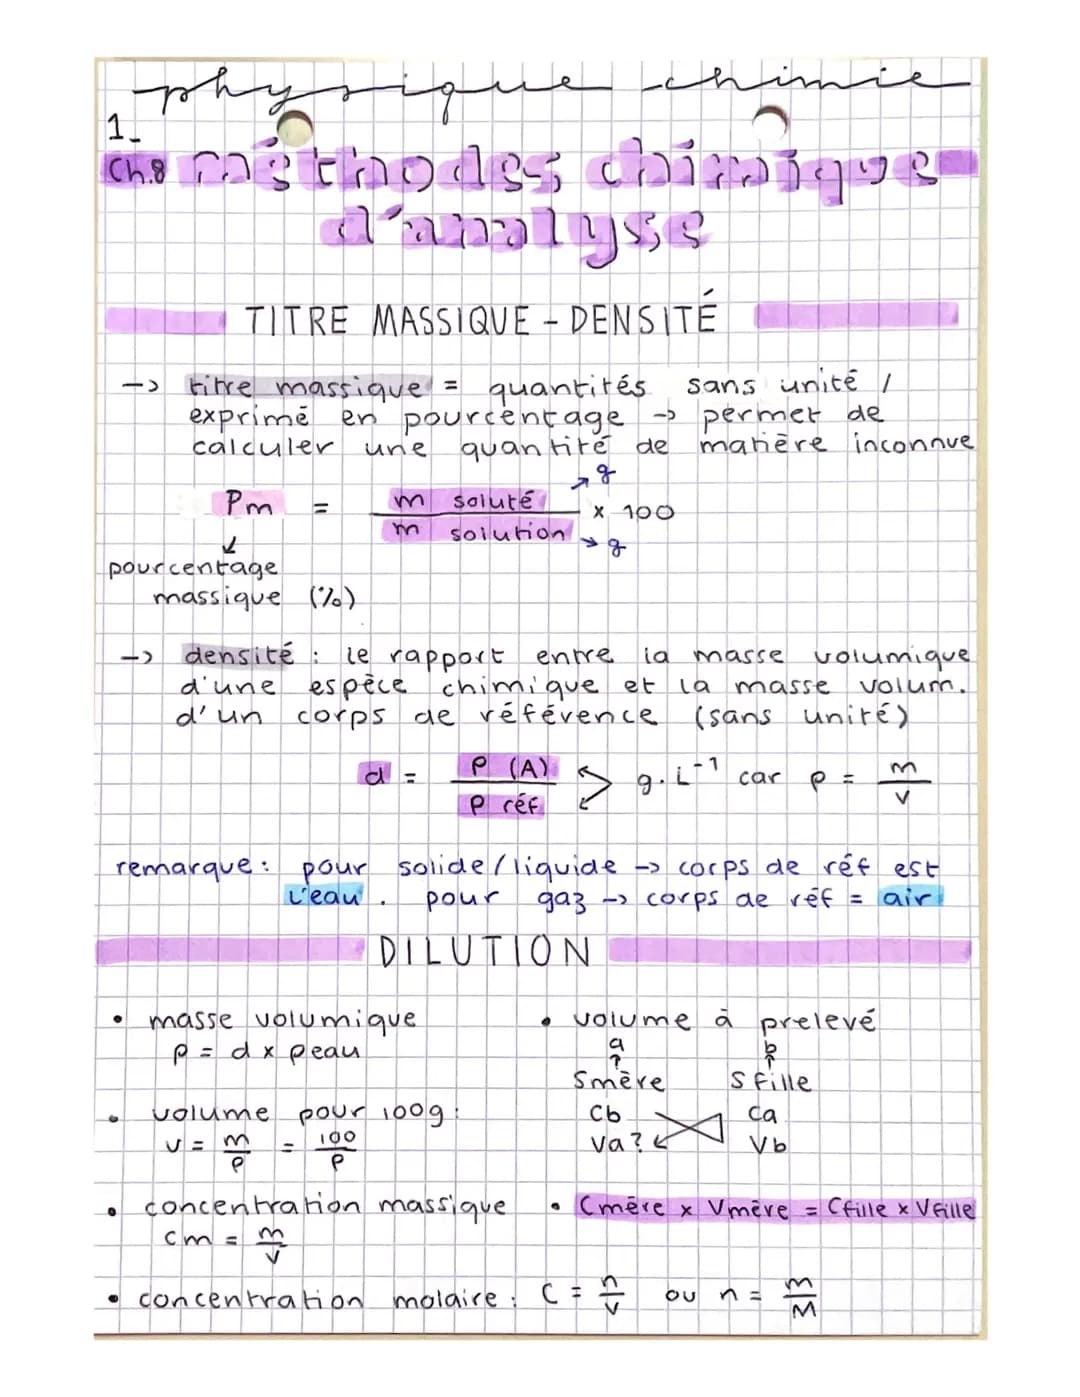 physique chimie
1_
Ch.8 méthodes chimique
d'analyse
TITRE MASSIQUE - DENSITÉ
-> titre massique = quantités sans unité /
exprimé en pourcentage -> permet de
calculer une quantité de matière inconnue
Pm = m soluté / m solution x 100
↗ g
→ g
↓
pourcentage
massique (%)
-> densité : le rapport entre la masse volumique
d'une espèce chimique et la masse volum.
d'un corps de référence (sans unité)
d = ρ (A) / ρ réf > g.L⁻¹ car ρ = m/v
remarque : pour solide/liquide -> corps de réf est
l'eau. pour gaz -> corps de réf = air
DILUTION
• masse volumique
ρ = d x ρeau
• volume pour 100g :
v = m/ρ = 100/ρ
• concentration massique
cm = m/v
• volume à prelevé
a b
↑ ↑
Smère Sfille
Cb Ca
Va? Vb
• Cmère x Vmère = Cfille x Vfille
• concentration molaire : C = n/v ou n = m/M